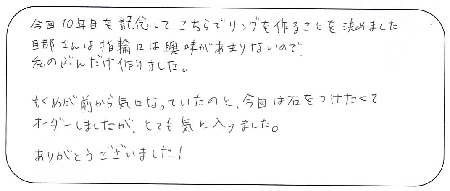 今回10年目を記念して こちらでリングを作ることを決めました
旦那さんは指輪には興味があまりないので、
私のぶんだけ作りました。
もくめが前から気になっていたのと、今回は石をつけたくて
オーダーしましたが、とても気に入りました。
ありがとうございました！